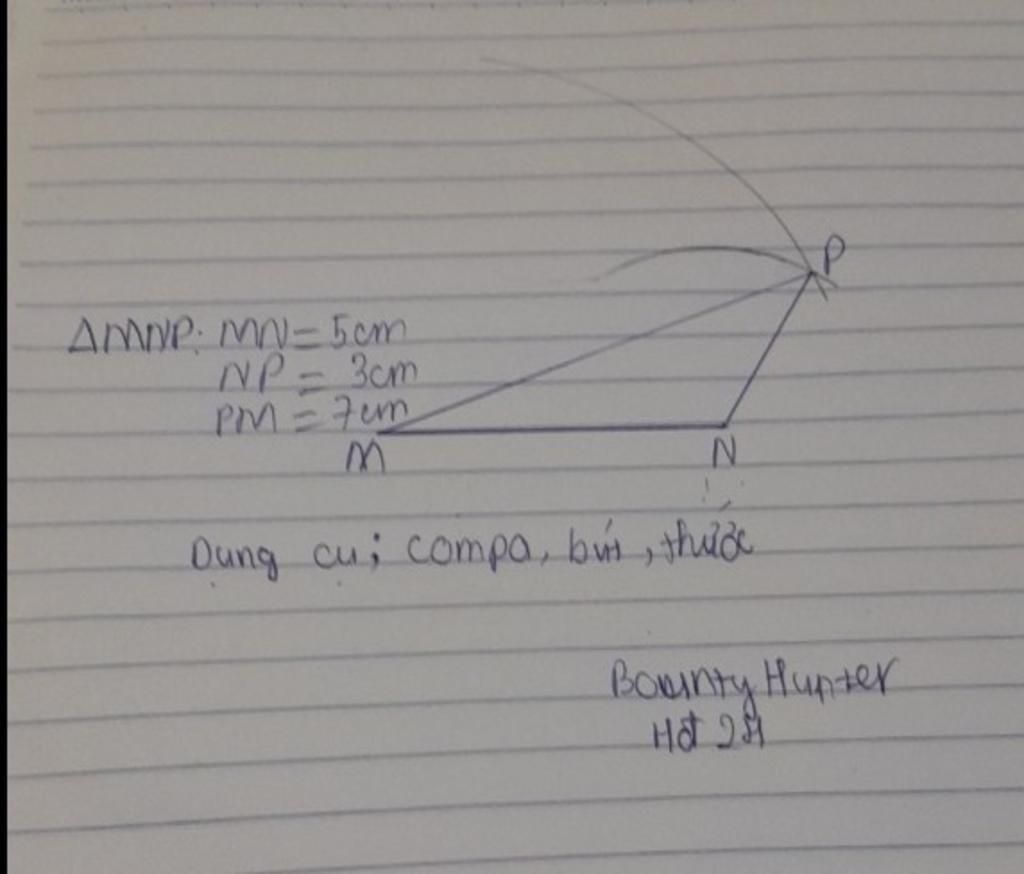 P
ΔMNP: MN = 5cm
NP = 3cm
PM = 7cm
M N
Dụng cụ; compa, bút, thước
Bounty Hunter